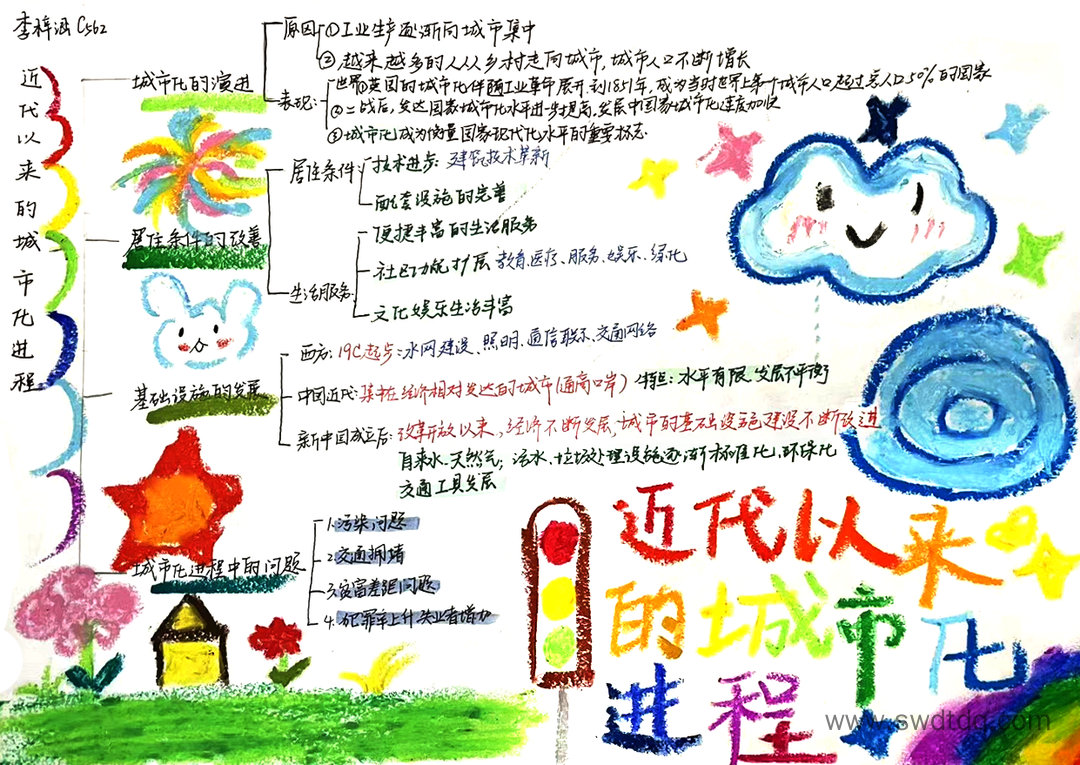 李梓涵 C562
近代以来的城市化进程
城市化的演进
原因
①工业生产逐渐向城市集中
②越来越多的人从乡村走向城市,城市人口不断增长
表现:
世界①英国的城市化伴随工业革命展开,到1851年,成为当时世界上第一个城市人口超过总人口50%的国家
②二战后,发达国家城市化水平进一步提高,发展中国家城市化速度加快
③城市化成为衡量国家现代化水平的重要标志
居住条件的改善
居住条件
技术进步:建筑技术革新
配套设施的完善
生活服务
便捷丰富的生活服务
社区功能扩展 教育、医疗、服务、娱乐、绿化
文化娱乐生活丰富
基础设施的发展
西方:19C起步:水网建设、照明、通信联系、交通网络
中国近代:集中在经济相对发达的城市(通商口岸) 特征:水平有限,发展不平衡
新中国成立后:改革开放以来,经济不断发展,城市的基础设施建设不断改进
自来水、天然气;污水、垃圾处理设施逐渐标准化、环保化
交通工具发展
城市化进程中的问题
1.污染问题
2.交通拥堵
3.贫富差距问题
4.犯罪率上升失业者增加
近代以来
的城市化
进程
www.swdtdq.com